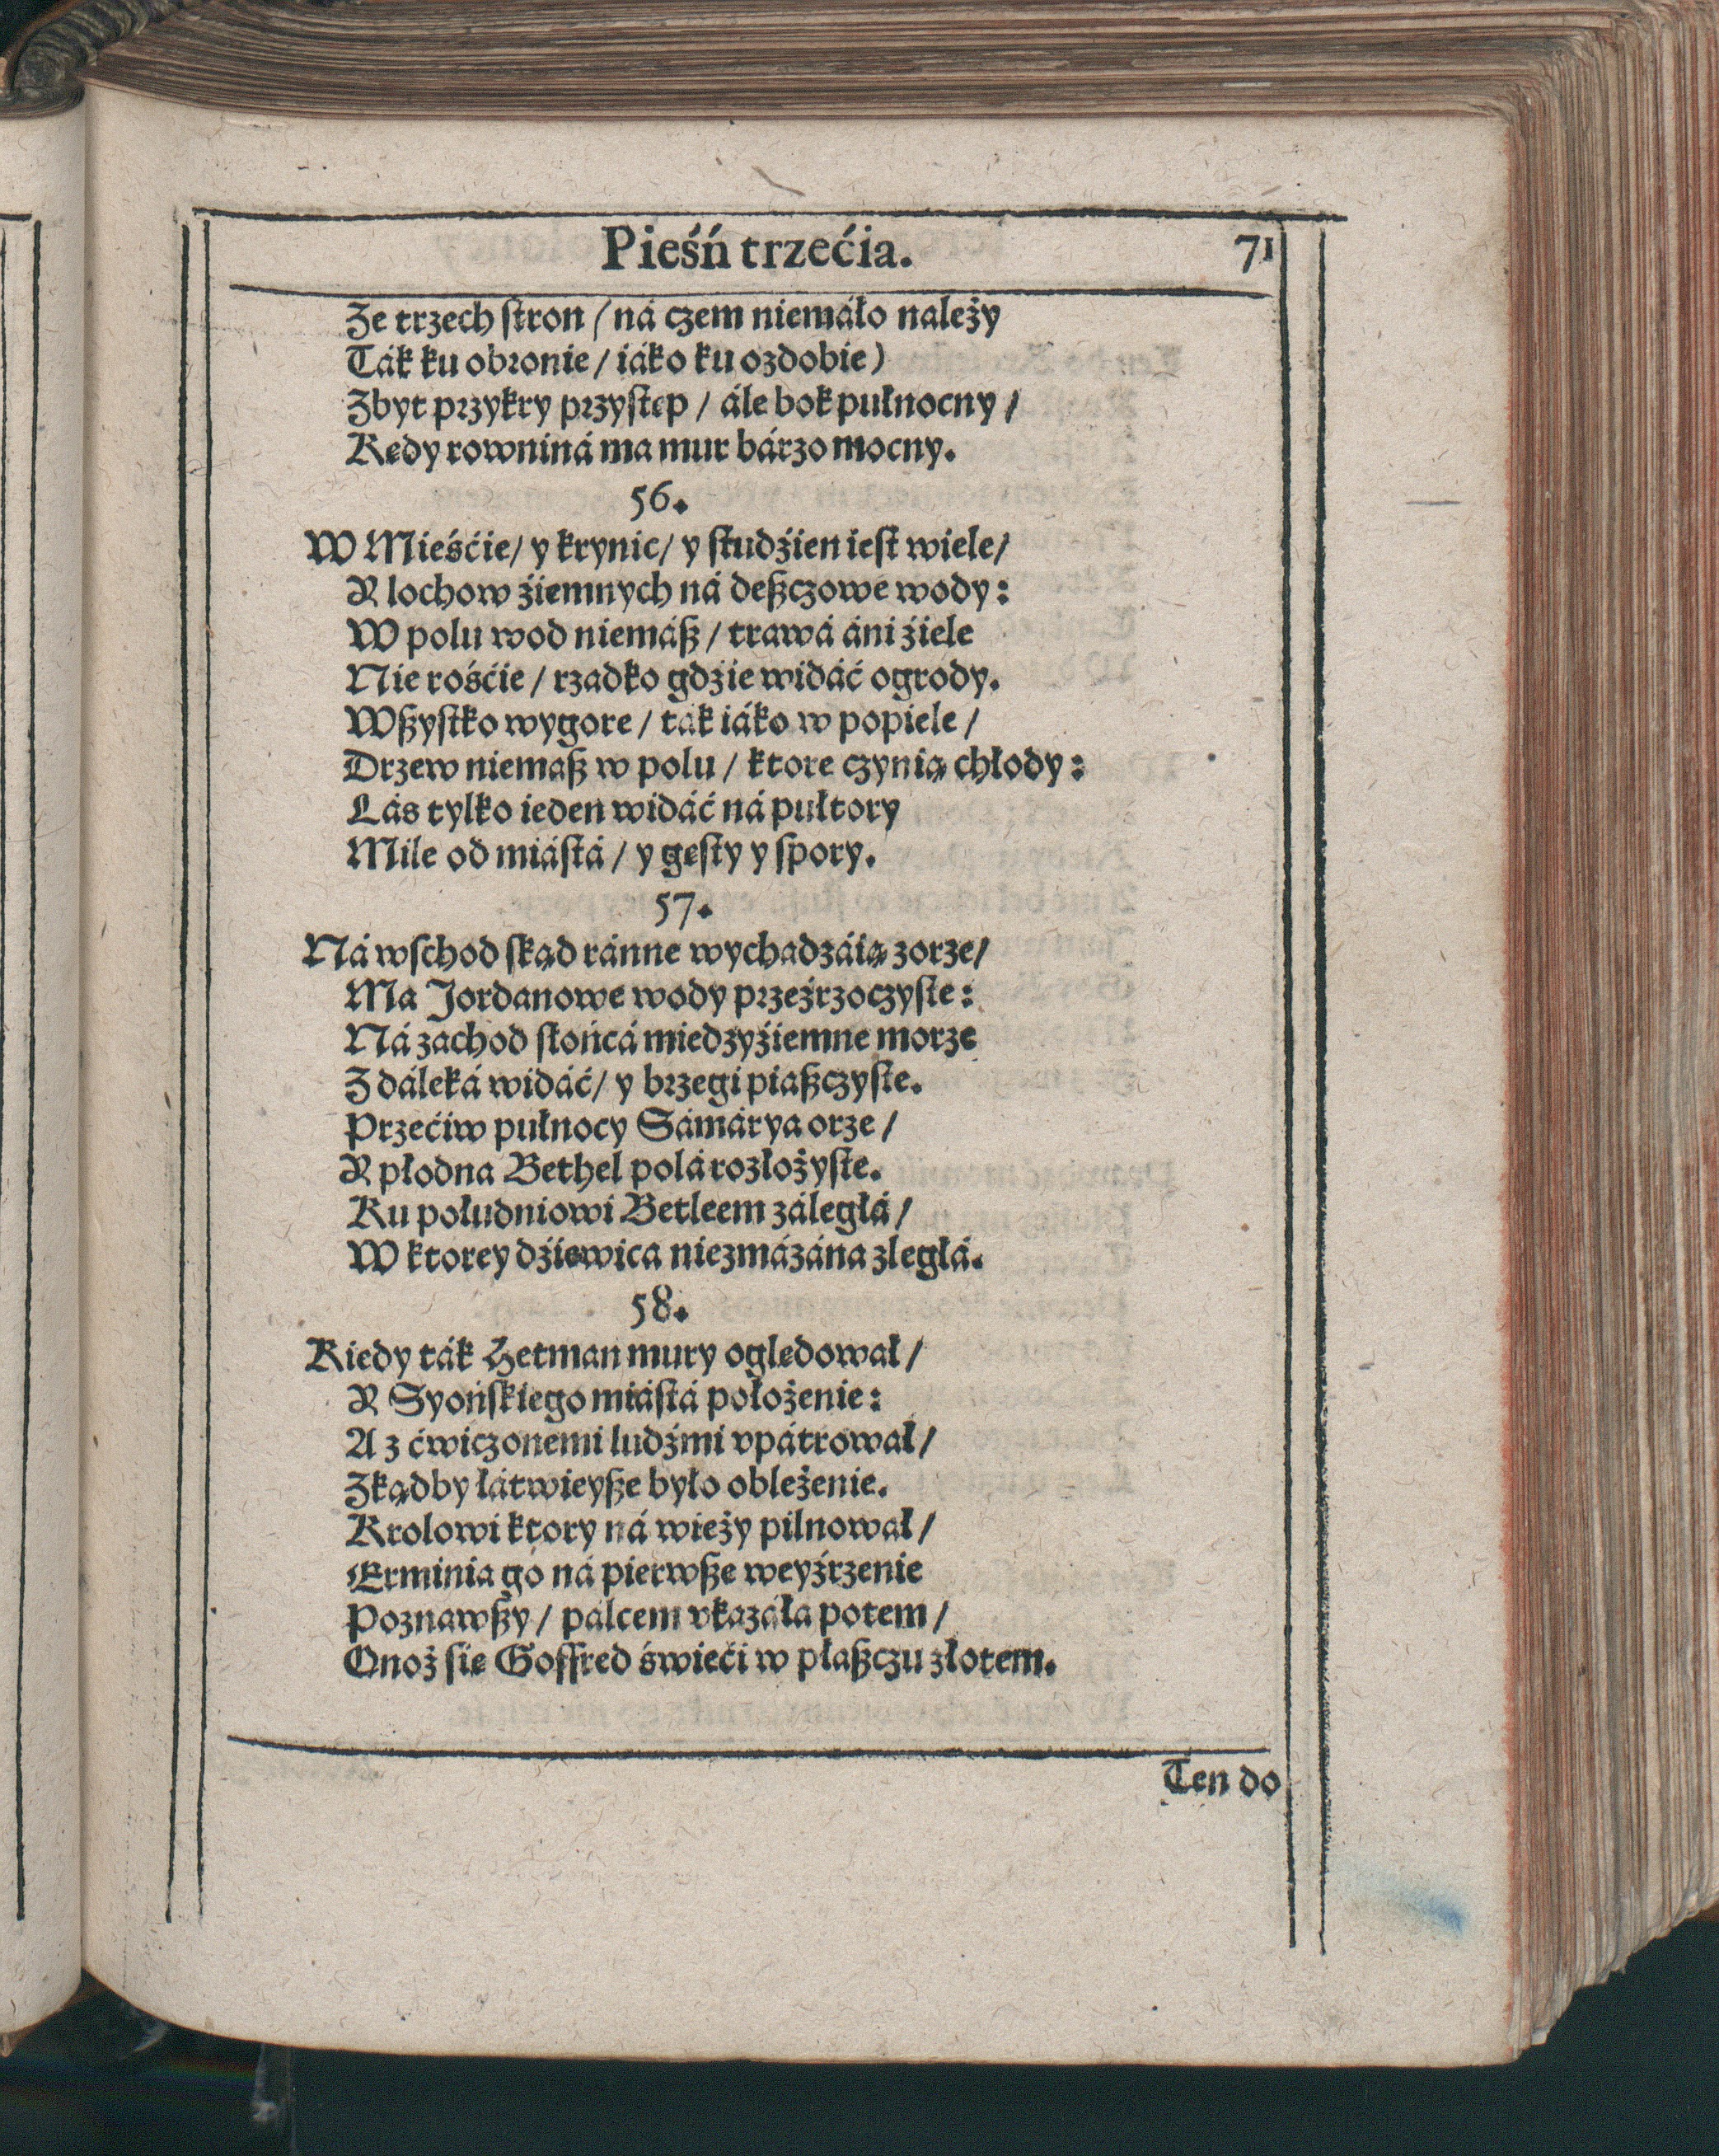 Pieśń trzećia. 71
Ze trzech ſtron / ná czem niemáło należy
Ták ku obronie / iáko ku ozdobie)
Zbyt przykry przyſtęp / ále bok pułnocny /
Kędy rowniná ma mur bárzo mocny.
56.
W Mieśćie / y krynic / y ſtudźien ieſt wiele /
Y lochow źiemnych ná deßczowe wody:
W polu wod niemáß / trawá áni źiele
Nie rośćie / rzadko gdźie widáć ogrody.
Wßyſtko wygore / ták iáko w popiele /
Drzew niemaß w polu / ktore czynią chłody:
Lás tylko ieden widáć ná pułtory
Mile od miáſtá / y gęſty y ſpory.
57.
Ná wſchod ſkąd ránne wychadzáią zorze /
Ma Jordanowe wody przeźrzoczyſte:
Ná zachod ſłońcá miedzyźiemne morze
Z dáleká widáć / y brzegi piaßczyſte.
Przećiw pułnocy Sámárya orze /
Y płodna Bethel polá rozłożyſte.
Ku południowi Betleem záległá /
W ktorey dźiewica niezmázána zległá.
58.
Kiedy ták Hetman mury oględował /
Y Syońſkiego miáſtá położenie:
A z ćwiczonemi ludźmi vpátrował /
Zkądby łátwieyße było oblężenie.
Krolowi ktory ná wieży pilnował /
Erminia go ná pierwße weyźrzenie
Poznawßy / pálcem vkazáła potem /
Onoż ſię Goffred świeći w płaßczu złotem.
Ten do